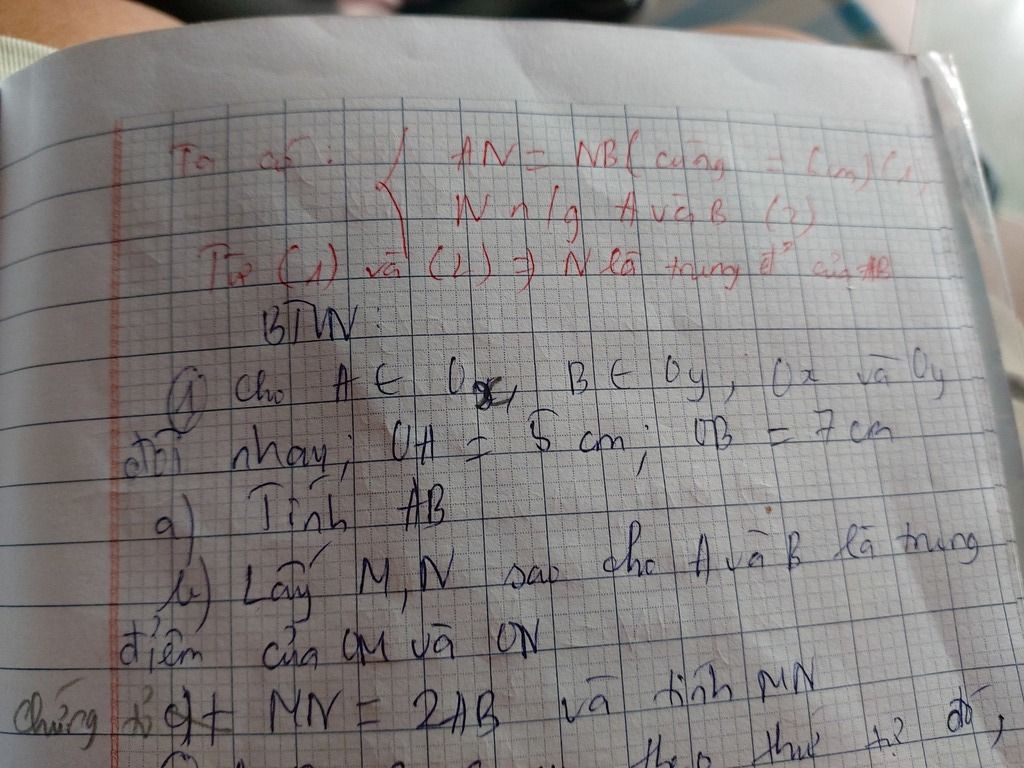 Ta có: { AN = NB (cùng = (cm) (1)
N n/g A và B (2)
Từ (1) và (2) ⇒ N là trung đ² của AB
BTVN:
① Cho A ∈ Ox, B ∈ Oy, Ox và Oy
đối nhau; OA = 5 cm; OB = 7 cm
a) Tính AB
b) Lấy M, N sao cho A và B là trung
điểm của OM và ON
Chứng tỏ MN = 2AB và tính MN
theo thứ tự đó,